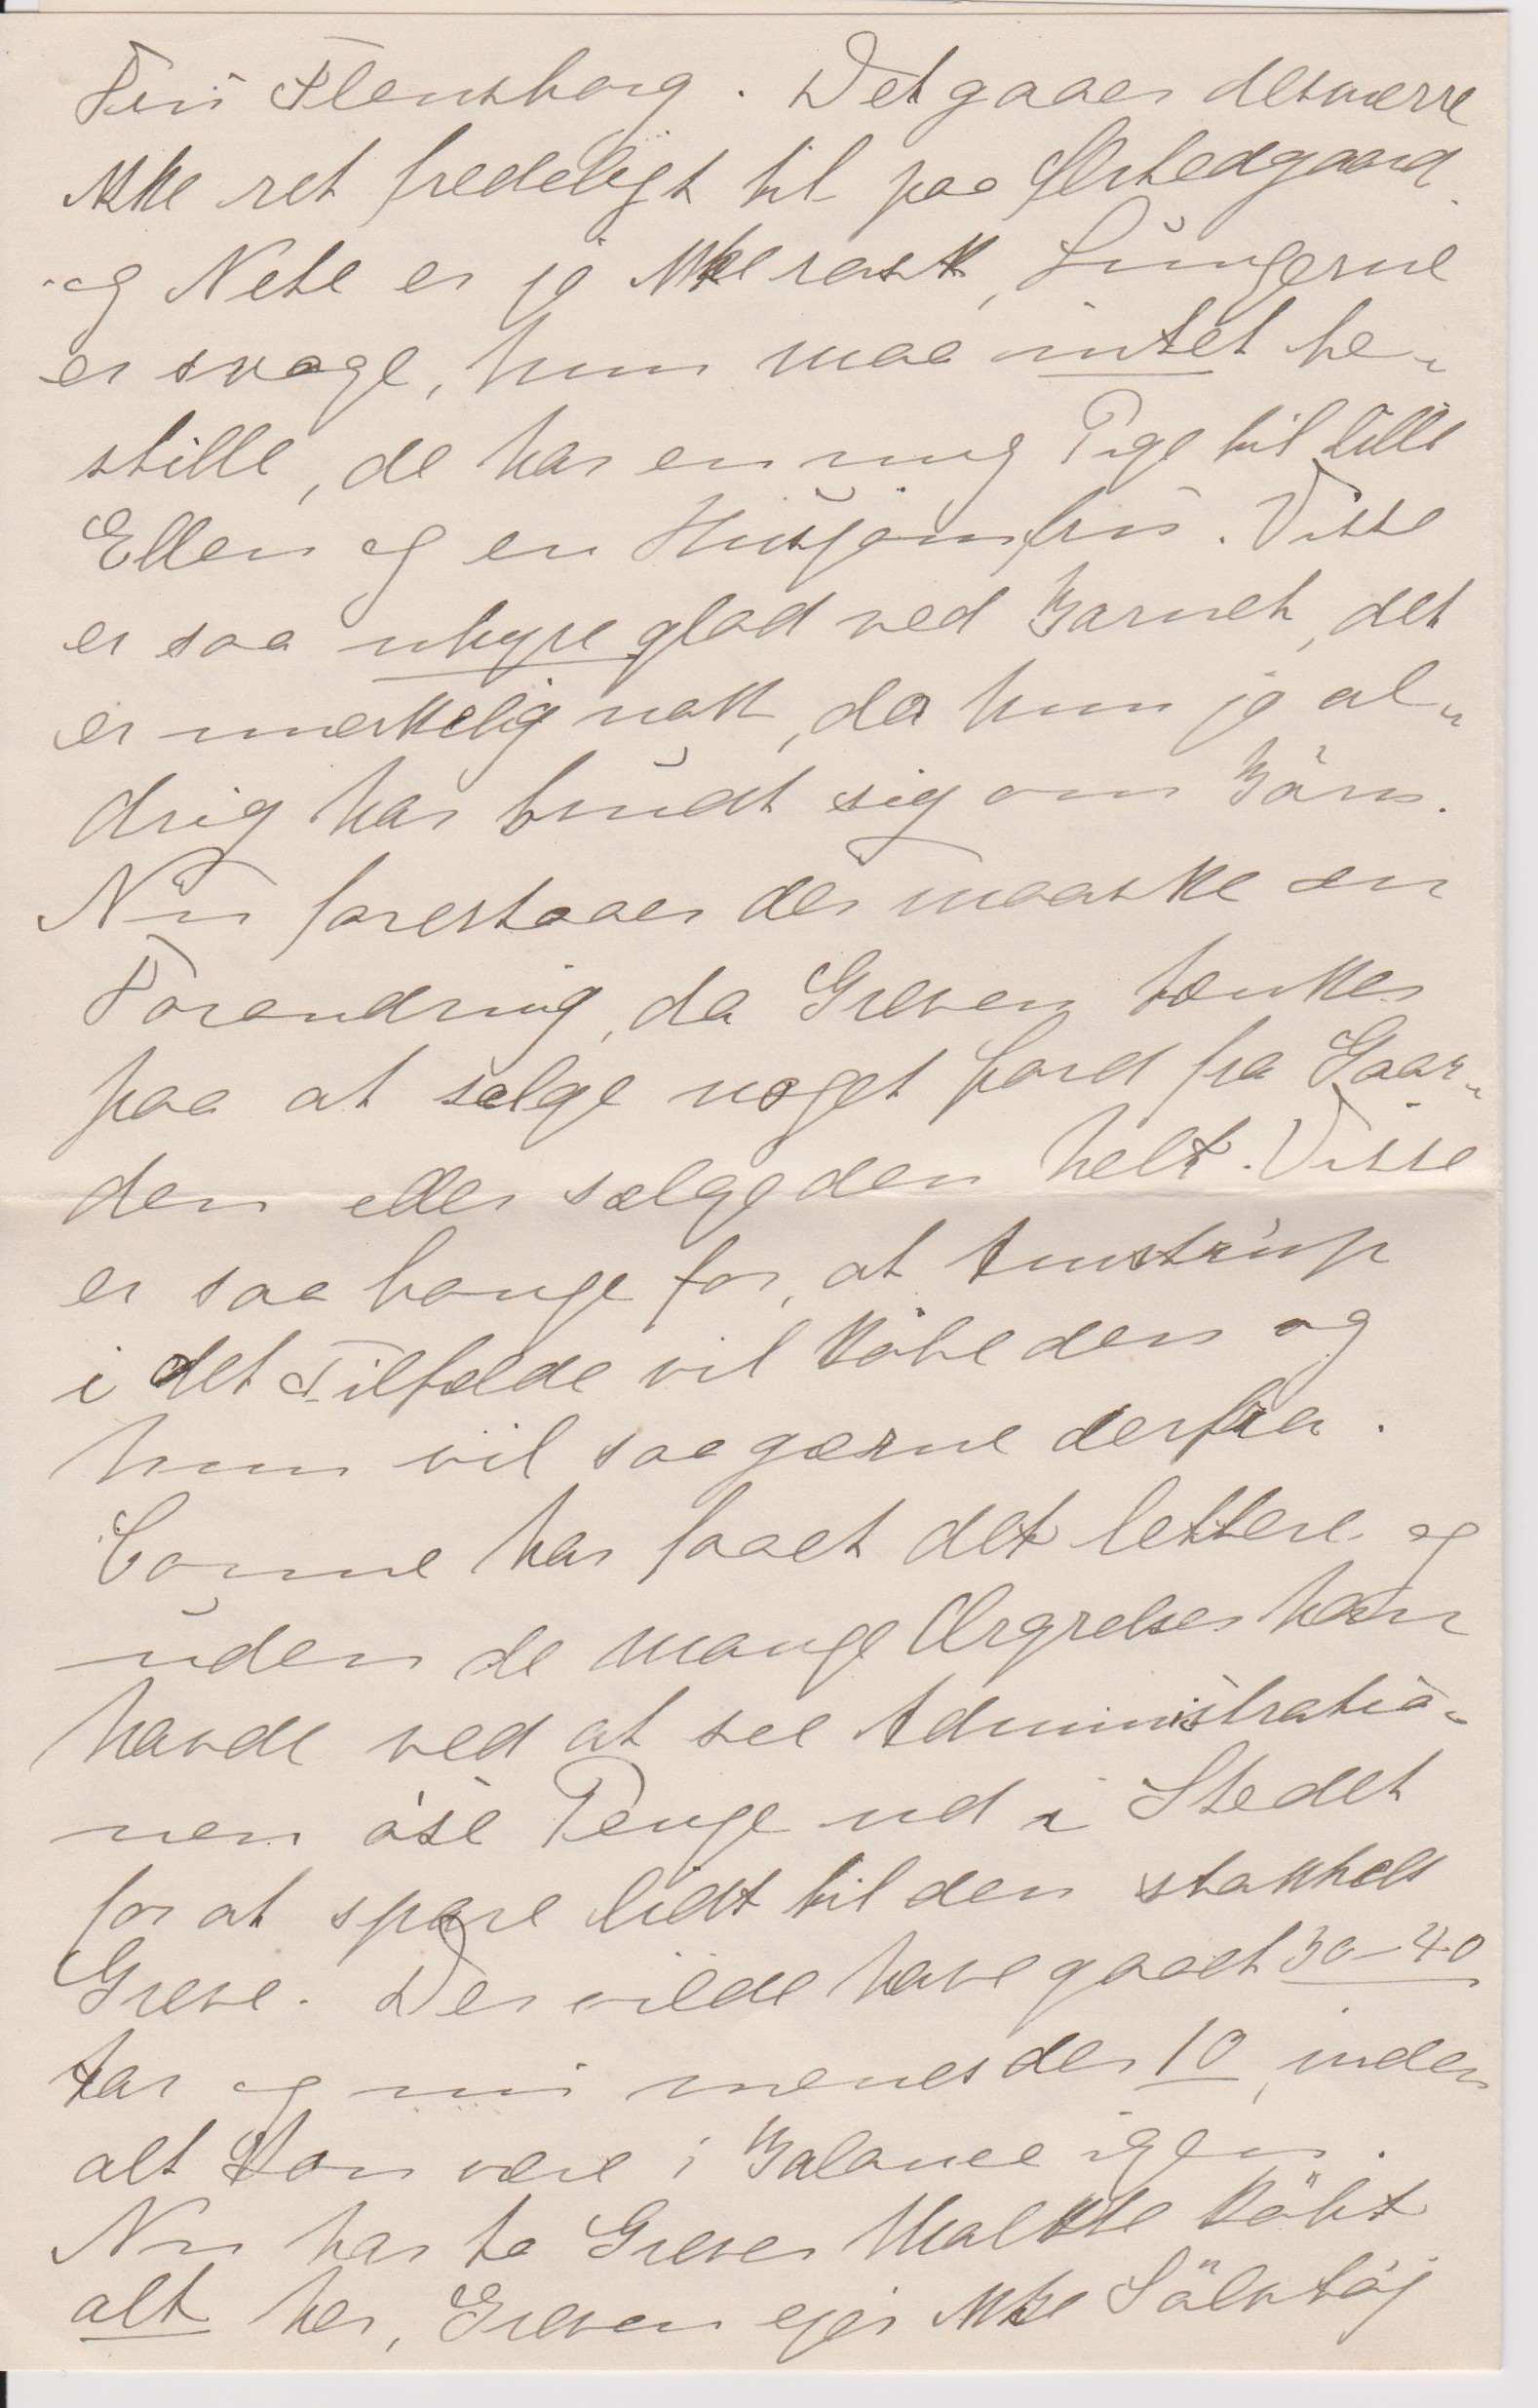 Fru Flensborg. Det gaaer desværre
ikke ret fredeligt til paa Ørstedgaard
og Nete er jo ikke rask, Lungerne
er svage, hun maa intet be-
stille, de har en ung Pige til lille
Ellen og en Husjomfru. Visse
er saa uhyre glad ved Barnet, det
er mærkelig nok, da hun jo al-
drig har brudt sig om Börn.
Nu forestaaer der maaske en
Forandring, da Greven tænker
paa at sælge noget Jord fra Gaar-
den eller sælge den helt. Visse
er saa bange for, at Amstrup
i det Tilfælde vil köbe den og
hun vil saa gærne derfra.
Conne har faaet det lettere og
uden de mange Ærgrelser han
havde ved at see Administratio-
nen öse Penge ud i Stedet
for at spare lidt til den stakkels
Greve. Der vilde have gaaet 30-40
Aar og nu menes der 10, inden
alt kan være i Balance igen.
Nu har to Grever Moltke köbt
alt her, Greven ejer ikke Sölvtöj